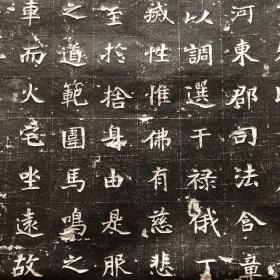 河東郡司法含章
以調選干禄俄丁
滅性惟佛有慈悲
至於捨身由是服
之道範圍馬鳴之
車而火宅坐遠故